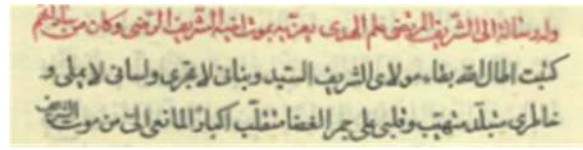 وله رسالة الى الشريف المرتضى علم الهدى يعزيه بموت اخيه الشريف الرضي وكان من
كتبت اطال الله بقاء مولاى الشريف السيد وبنانى لا تجرى ولسانى لا يملى و
خاطرى متبلد متهيب وقلبى على جمر الغضا متقلب اكبارا لما نعى الى من موت الشريف